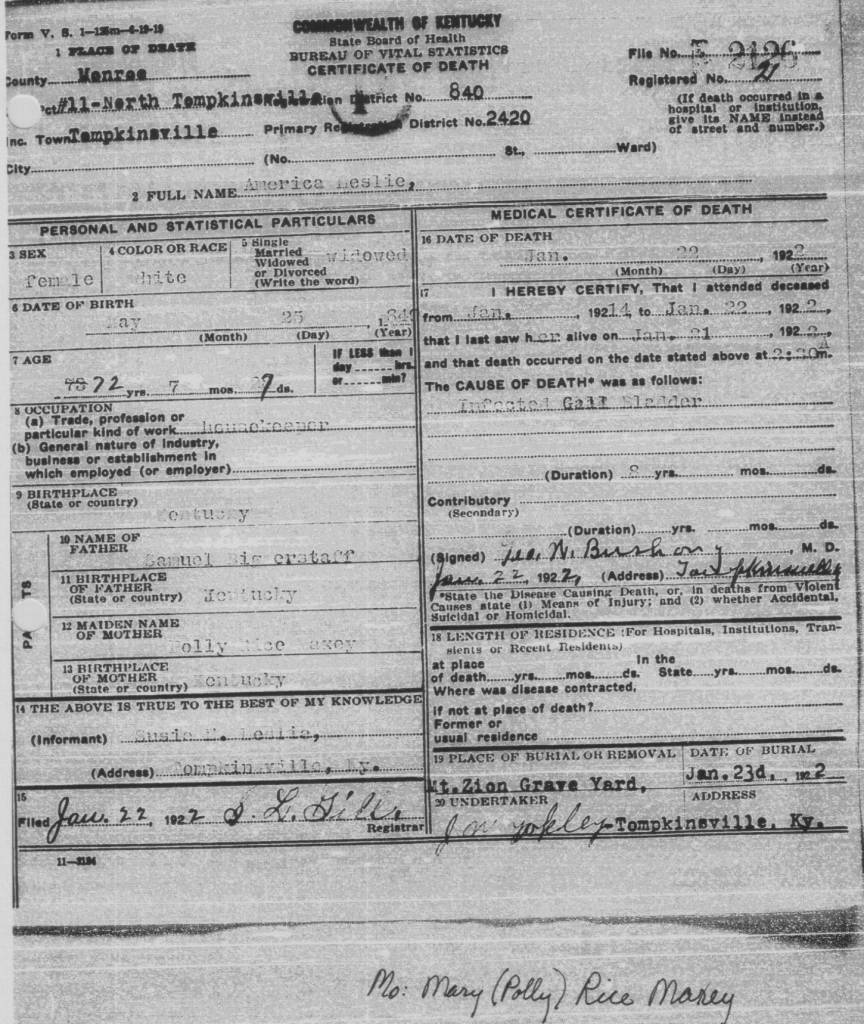 Form V. S. 1-125m-6-19-19
COMMONWEALTH OF KENTUCKY
State Board of Health
BUREAU OF VITAL STATISTICS
CERTIFICATE OF DEATH
1 PLACE OF DEATH
County Monroe
File No. 2126
Registered No. 21
pct #11-North Tompkinsville District No. 840
(If death occurred in a hospital or institution, give its NAME instead of street and number.)
Inc. Town Tompkinsville Primary District No. 2420
City (No. St., Ward)
2 FULL NAME America Leslie,
PERSONAL AND STATISTICAL PARTICULARS
3 SEX female
4 COLOR OR RACE white
5 Single Married Widowed or Divorced (Write the word) widowed
6 DATE OF BIRTH
May 25 1849
(Month) (Day) (Year)
7 AGE
72 yrs. 7 mos. 27 ds.
IF LESS than 1 day hrs. or min?
8 OCCUPATION
(a) Trade, profession or
particular kind of work housekeeper
(b) General nature of industry,
business or establishment in
which employed (or employer)
9 BIRTHPLACE
(State or country)
Kentucky
PA TS
10 NAME OF FATHER Samuel Big erstaff
11 BIRTHPLACE OF FATHER (State or country) Kentucky
12 MAIDEN NAME OF MOTHER Polly Rice axey
13 BIRTHPLACE OF MOTHER (State or country) Kentucky
14 THE ABOVE IS TRUE TO THE BEST OF MY KNOWLEDGE
(Informant) Susie Leslie,
(Address) Tompkinsville, Ky.
15
Filed Jan. 22, 1922 Registrar
11-3184
MEDICAL CERTIFICATE OF DEATH
16 DATE OF DEATH
Jan. 22, 1922
(Month) (Day) (Year)
17 I HEREBY CERTIFY, That I attended deceased
from Jan. , 19214 to Jan. 22, 1922,
that I last saw her alive on Jan. 21, 1922,
and that death occurred on the date stated above at 2:30 A m.
The CAUSE OF DEATH* was as follows:
Infected Gall Bladder
(Duration) 8 yrs. mos. ds.
Contributory
(Secondary)
(Duration) yrs. mos. ds.
(Signed) Geo. W. Bushong, M. D.
Jan. 22, 1922, (Address) Tompkinsville
*State the Disease Causing Death, or, in deaths from Violent
Causes state (1) Means of Injury; and (2) whether Accidental,
Suicidal or Homicidal.
18 LENGTH OF RESIDENCE (For Hospitals, Institutions, Tran-
sients or Recent Residents)
at place In the
of death yrs. mos. ds. State yrs. mos. ds.
Where was disease contracted,
if not at place of death?
Former or
usual residence
19 PLACE OF BURIAL OR REMOVAL DATE OF BURIAL
Mt. Zion Grave Yard, Jan. 23d, 1922
20 UNDERTAKER ADDRESS
J W Yokley-Tompkinsville, Ky.
Mo: Mary (Polly) Rice Maxey